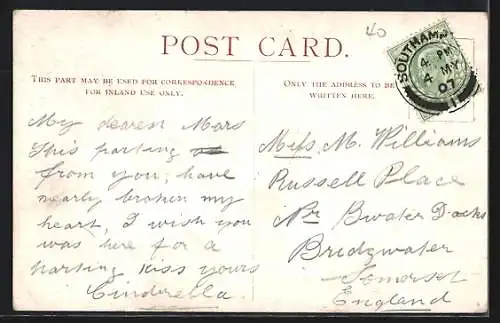 40
POST CARD.
THIS PART MAY BE USED FOR CORRESPONDENCE
FOR INLAND USE ONLY.
ONLY THE ADDRESS TO BE
WRITTEN HERE.
SOUTHAMP
4. PM
4 MY
07
11
My dearest Mars
This parting
from you, have
nearly broken my
heart, I wish you
was here for a
parting kiss yours
Cinderella.
Miss. M. Williams
Russell Place
Nr Bwater Docks
Bridgwater
Somerset
England